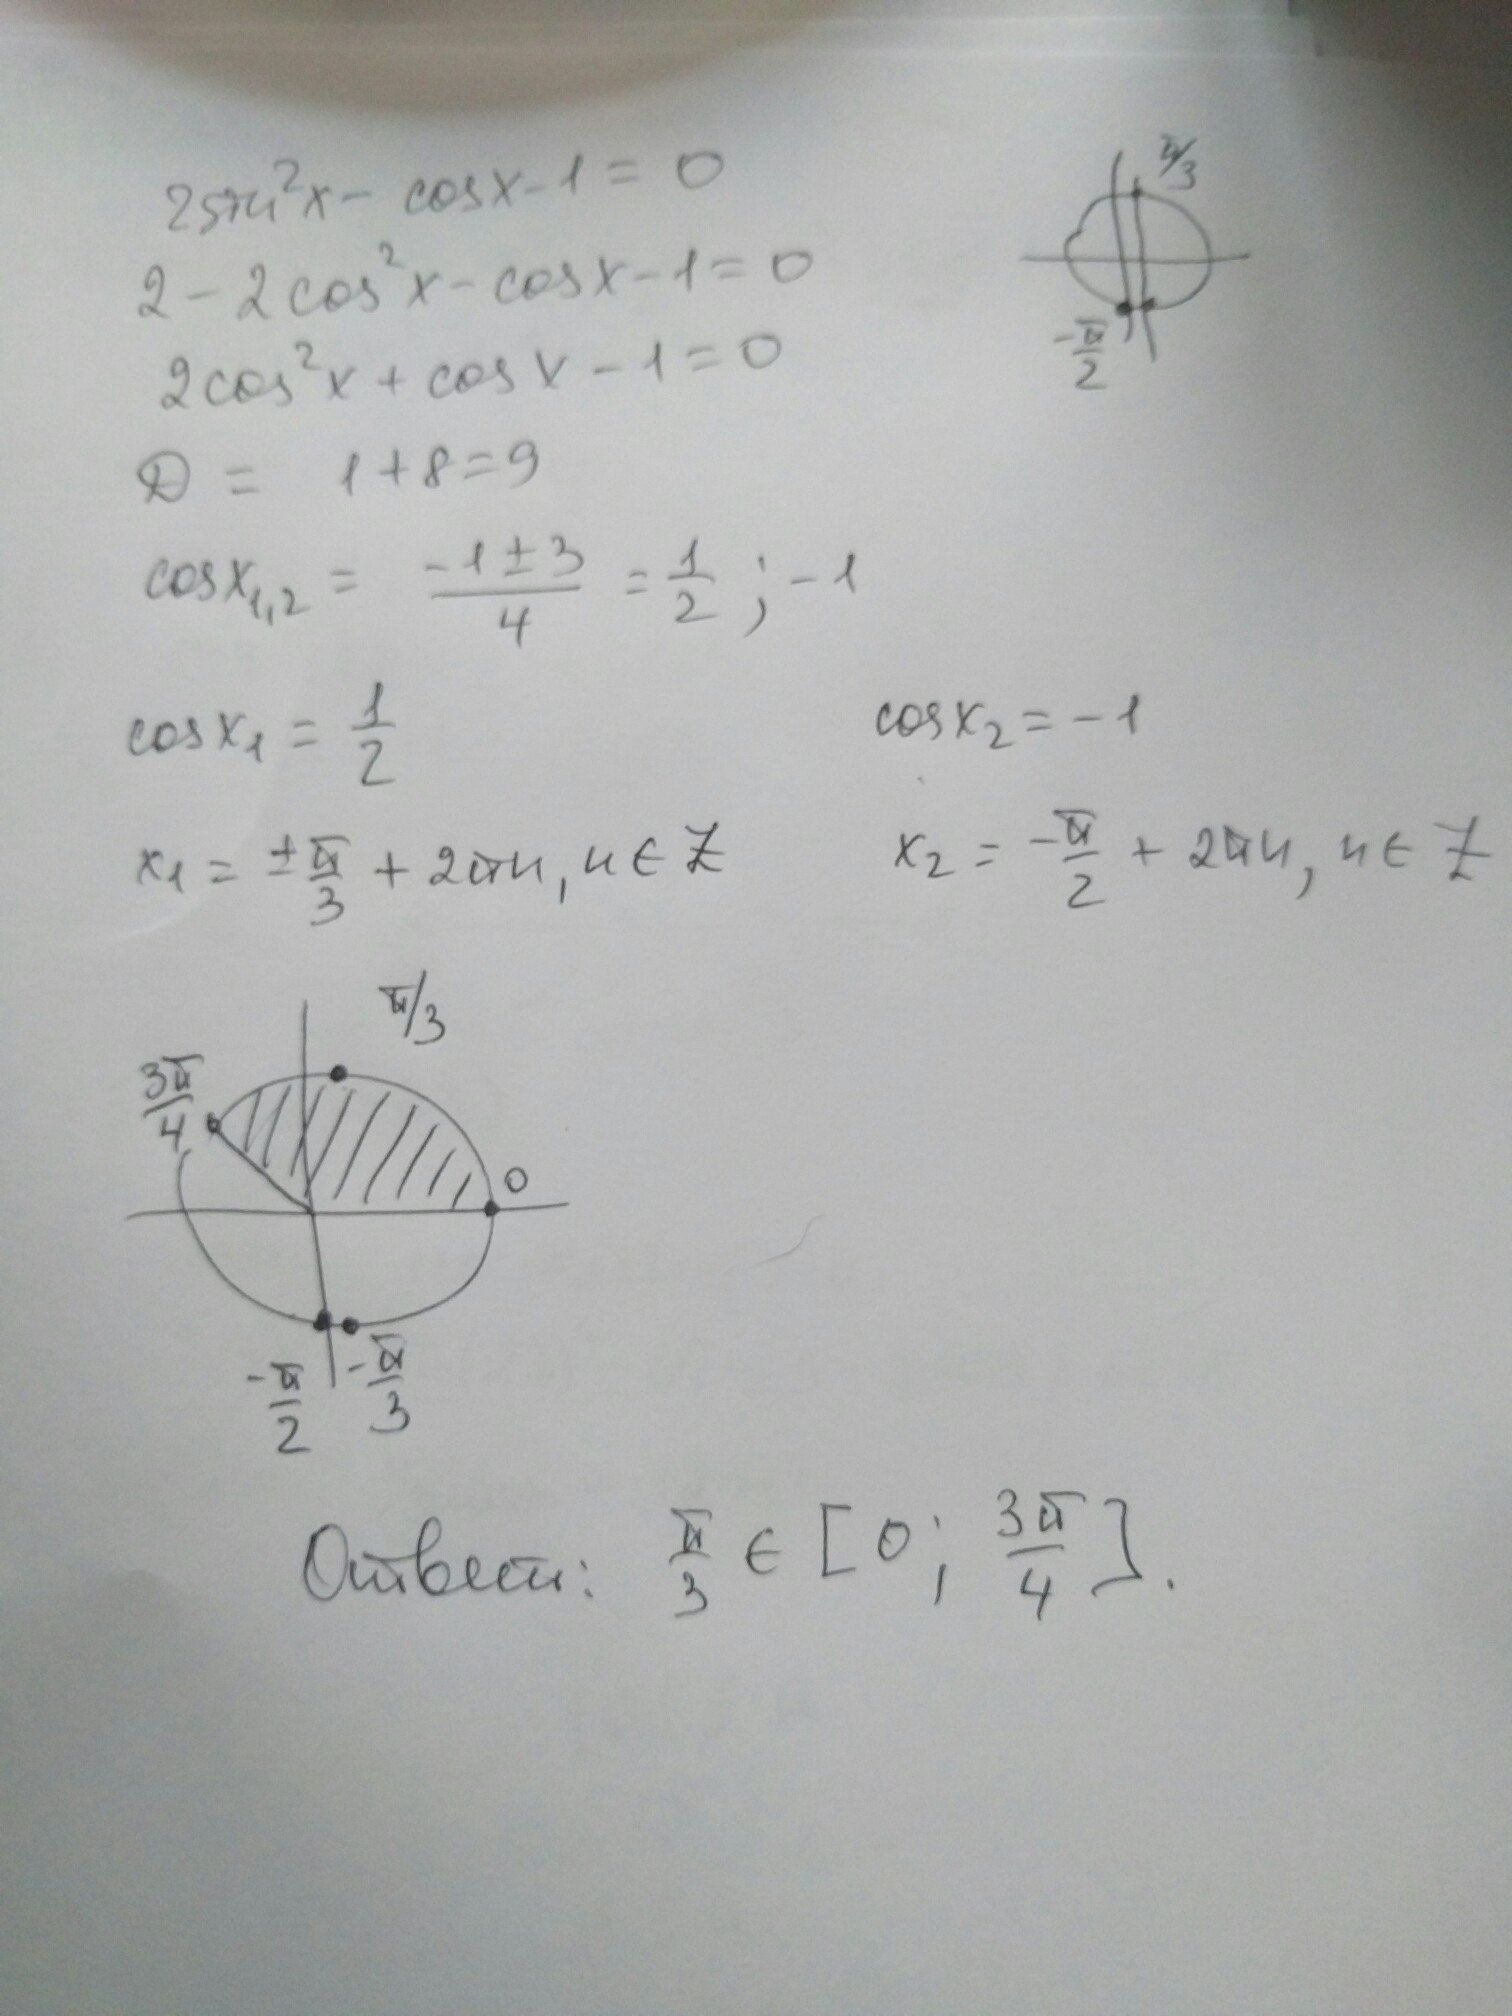 2sin²x - cosx - 1 = 0
π/3
2 - 2cos²x - cosx - 1 = 0
-π/2
2cos²x + cosx - 1 = 0
D = 1 + 8 = 9
cosx₁,₂ = (-1 ± 3)/4 = 1/2 ; -1
cosx₁ = 1/2
cosx₂ = -1
x₁ = ±π/3 + 2πn, n ∈ Z
x₂ = -π/2 + 2πn, n ∈ Z
π/3
3π/4
0
-π/2
-π/3
Ответ: π/3 ∈ [0; 3π/4].